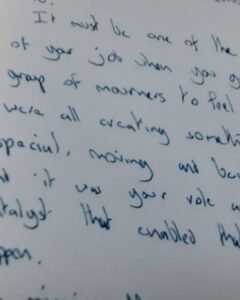 It must be one of the
of your job when you g
group of mourners to feel
were all creating someth
special, moving and bei
it was your role a
talyst that enabled tha
ppen.